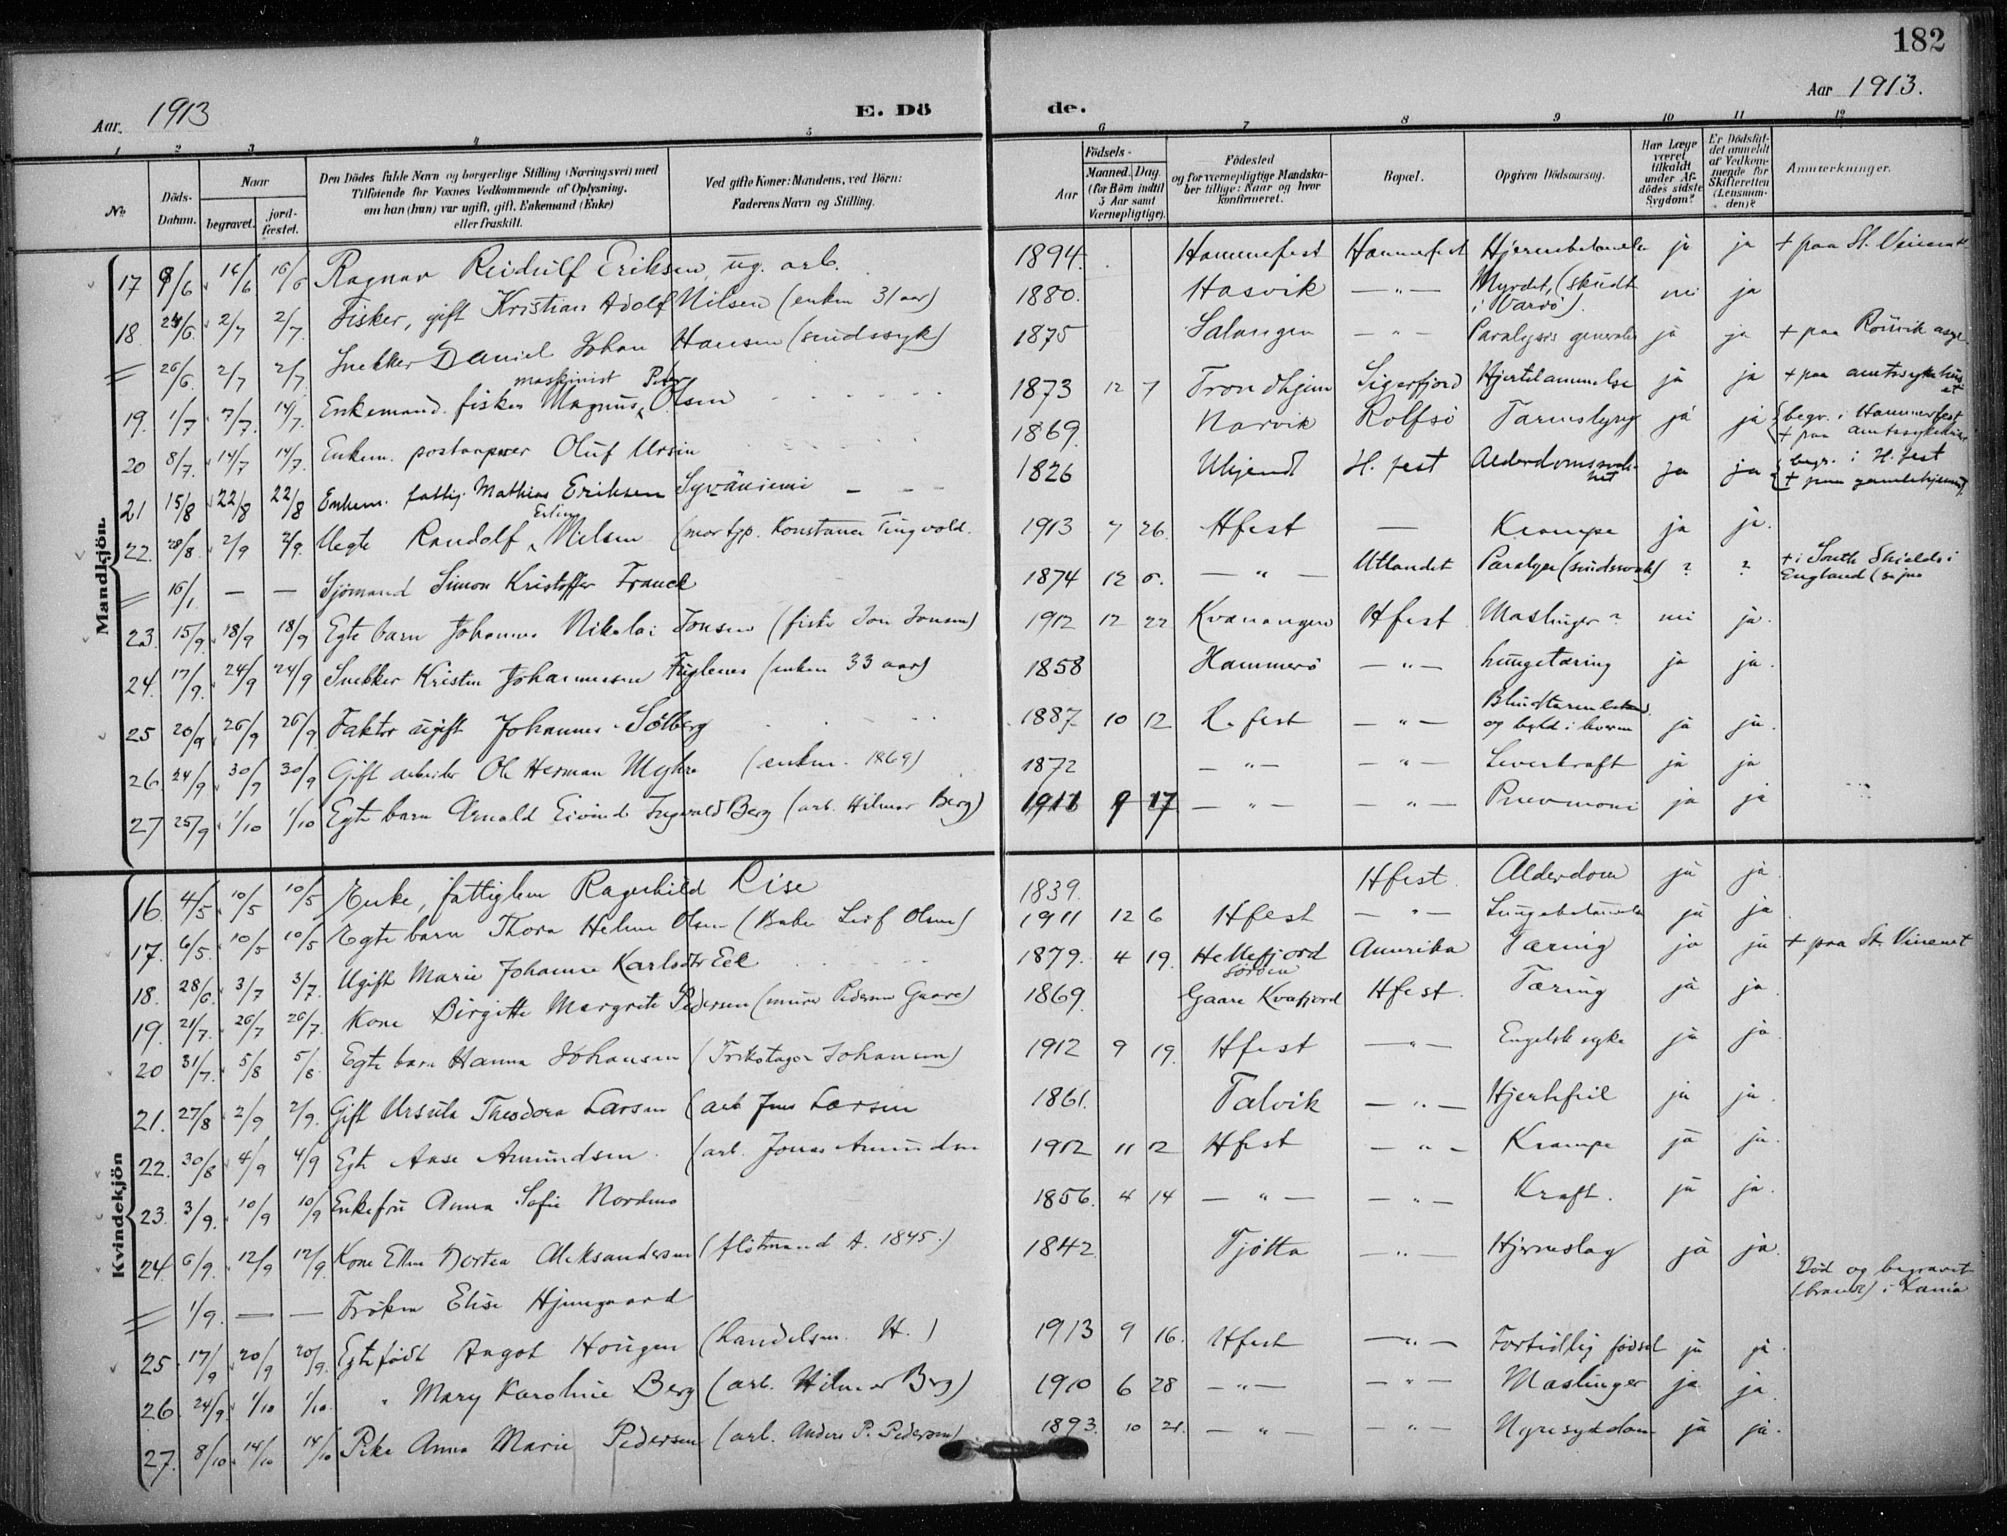 182
Aar. 1913 E. Dö de. Aar 1913.
1 2 3 4 5 6 7 8 9 10 11 12
No
Döds-Datum.
Naar
begravet. jord-fæstet.
Den Dödes fulde Navn og borgerlige Stilling (Næringsvei) med
Tilföiende for Voxnes Vedkommende af Oplysning.
om han (hun) var ugift, gift, Enkemand (Enke)
eller fraskilt.
Ved gifte Koner: Mandens, ved Börn:
Faderens Navn og Stilling.
Födsels-
Aar Maaned. Dag.
(for Börn indtil
5 Aar samt
Værnepligtige).
Födested
og for værnepligtige Mandska-
ber tillige: Naar og hvor
konfirmeret.
Bopæl.
Opgiven Dödsaarsag.
Har Læge
været
tilkaldt
under Af-
dödes sidste
Sygdom?
Er Dödsfal-
det anmeldt
af Vedkom-
mende for
Skifteretten
(Lensman-
den)?
Anmærkninger.
Mandkjön.
17 9/6 16/6 16/6 Ragnar Reidulf Eriksen, ug. arb. 1894. Hammerfest Hammerfest ja ja + paa St. Vincent
18. 24/6 2/7 2/7. Fisker, gift Kristian Adolf Nilsen (enken 31 aar) 1880. Hasvik — " — Myrdet, (skudt i Vardö). nei ja
= 26/6 2/7 2/7. Snekker Daniel Johan Hansen (sindssyk) 1875 Salangen — " — Paralysis generalis ja ja + paa Rönvik asyl
19. 1/7 7/7. 14/7. Enkemand. fisker maskinist Magnus Peder Olsen 1873 12 7 Trondhjem Sigerfjord Hjertelammelse ja ja + paa amtssykehuset
20 8/7. 14/7 14/7. Enkem. postaapner Oluf Ursin 1869. Narvik Rolfsö Tarmslyng ja ja begr. i Hammerfest + paa amtssykehuset
21 15/8 22/8 22/8 Enkem. fattig. Mathias Eriksen Syväniemi 1826 Ukjendt H. fest ja ja begr. i H. fest + paa gamlehjemmet
22. 28/8. 2/9 2/9. Uegte Randolf Erling Nielsen (mor tjp. Konstance Tingvold. 1913 7 26. Hfest — Krampe ja ja.
= 16/1. — — Sjömand Simon Kristoffer Franck 1874 12 — " — Utlandet ? ? + i South Shields i England
23. 15/9 18/9 18/9 Egte barn Johannes Nikolai Jonsen (fisker Jon Jonsen) 1912 12 22 Kvænangen Hfest Mæslinger ? nei ja.
24. 17/9. 24/9 24/9 Snekker Kristen Johannessen Fuglenes (enken 33 aar) 1858 Hammerö — " — lungetæring ja ja.
25 20/9 26/9 26/9 Faktor ugift Johannes Solberg 1887. 10 12 H. fest — " — ja ja.
26 24/9 30/9 30/9 Gift arbeider Ole Herman Myhre (enken. 1869) 1872 — " — — " — Leverkræft ja ja
27 25/9 1/10 1/10 Egte barn Arnold Eivind Ingvald Berg (arb. Hilmar Berg) 1911 9 17 — " — — " — Pnevmoni ja ja
Kvindekjön
16. 4/5 10/5 10/5 Enke, fattiglem Ragnhild Rise 1839. Hfest. Alderdom ja ja.
17. 6/5. 10/5 10/5 Egte barn Thora Helene Olsen (Baker Leif Olsen) 1911 12 6 Hfest — " — ja ja
18. 28/6. 3/7 3/7. Ugift Marie Johanne Karlsdtr Eck 1879. 4 19. Hellefjord Sörøen Amerika Tæring ja ja + paa St. Vincent
19. 21/7. 26/7 26/7. Kone Birgitte Margrete Pedersen (murer Pedersen Gaare) 1869. Gaare Kvæfjord Hfest. Tæring ja ja.
20 31/7. 5/8 5/8 Egte barn Hanna Johansen (Trikotager Johansen) 1912 9 19. Hfest — " — Engelsk syke ja ja.
21. 27/8 2/9 2/9. Gift Ursula Theodora Larsen (arb. Jens Larsen 1861. Talvik — " — Hjertefeil ja ja.
22. 30/8 4/9 4/9 Egte Aase Amundsen. (arb. Jonas Amundsen 1912 11 12 Hfest — " — Krampe ja ja.
23. 3/9. 10/9 10/9 Enkefru Anna Sofie Nordmo 1856. 4 14 — " — — " — Kræft. ja ja.
24. 6/9. 12/9 12/9. Kone Ellen Dortea Aleksandersen (flötmand A. 1845.) 1842 Tjötta — " — Hjerneslag ja ja.
= 1/9. — — Fröken Elise Hjemgaard Död og begravet (brændt) i
25 17/9 20/9 20/9. Egtefödt Aagot Hougen (handelsm. H.) 1913 9 16. Hfest — " — Fortidlig fødsel ja ja
26. 24/9. 1/10 1/10. " Mary Karoline Berg (arb. Hilmar Berg) 1910 6 28 — " — — " — Mæslinger ja ja.
27. 8/10 14/10 14/10 Pike Anna Marie Pedersen (arb. Anders P. Pedersen) 1893. 10 21. — " — — " — Nyresygdom ja ja.